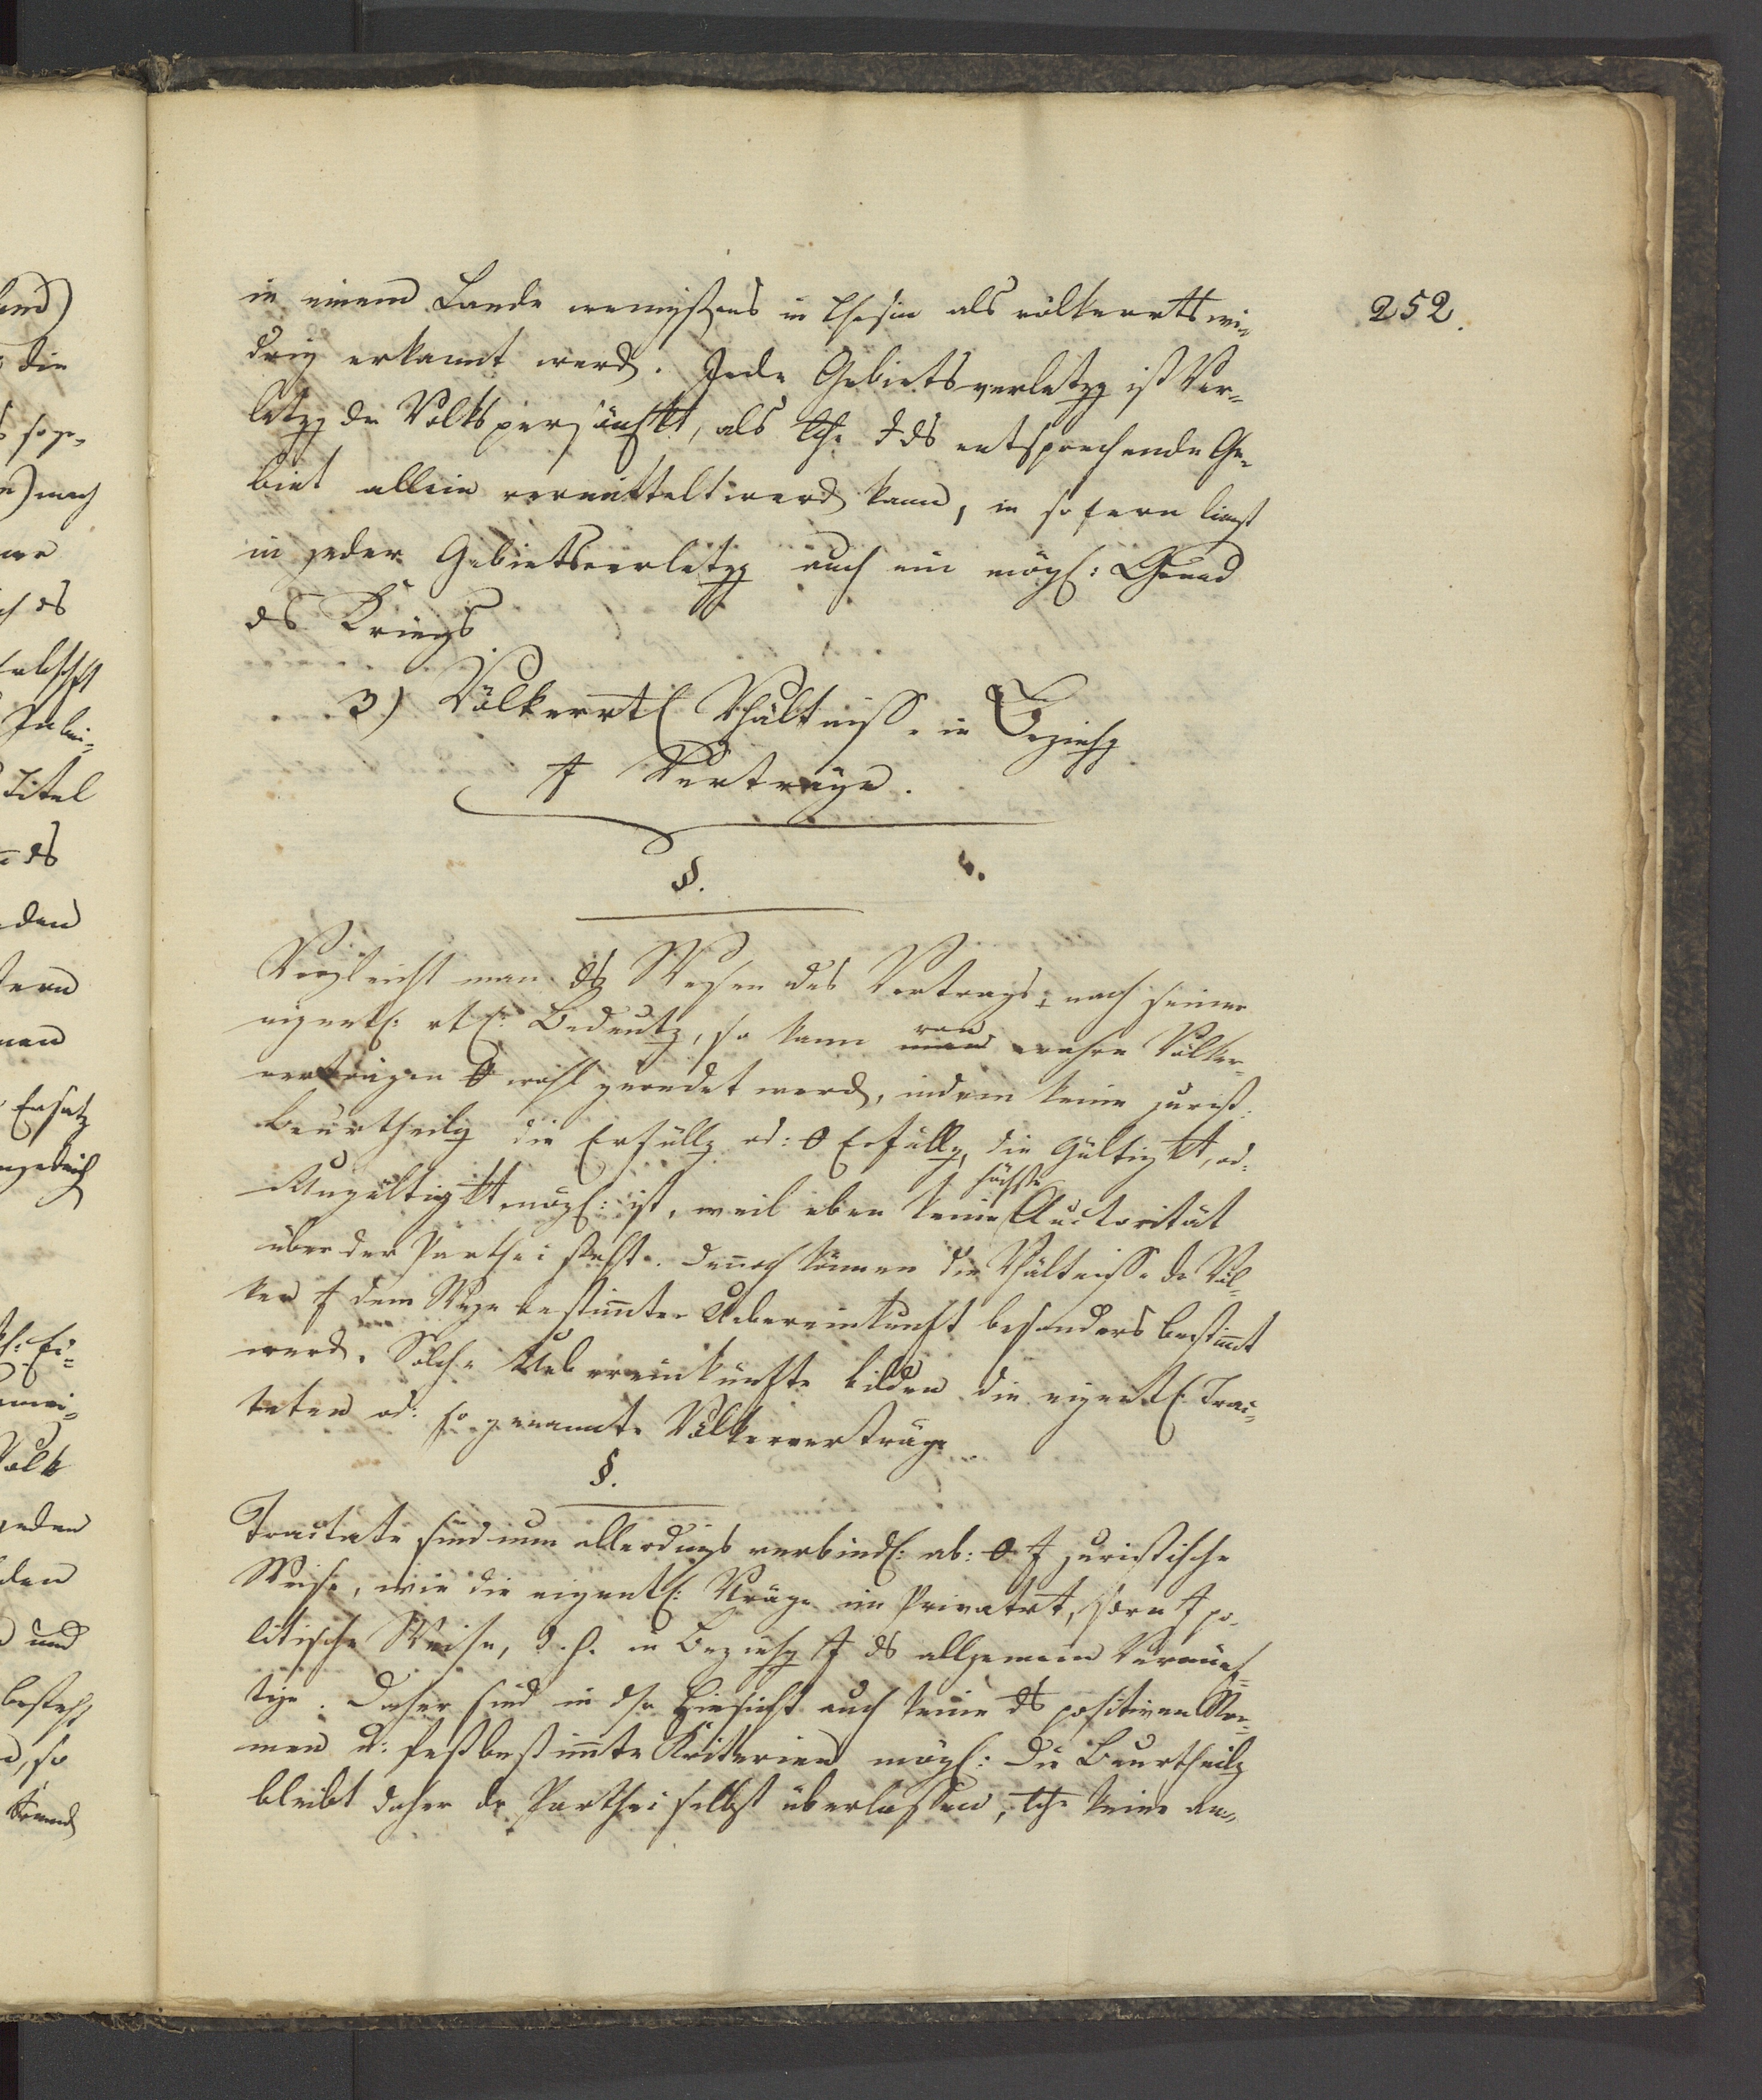 252.
in einem Lande wenigstens in thesin als völkerrtswi-
drig erkannt werd. Jede Gebietsverletzg ist Ver-
letzg der Volkspersönlkt, als lche ds entsprechende Ge-
biet allein vermittelt werd kann, in sofern liegt
in jeder Gebietsverletzg auch ein mögl: Grund
des Kriegs
3) Völkerrtl Vhältnisse in Beziehg
Verträge.
§.
Vergleicht man ds Wesen des Vertrags, nach seiner
eigentl: rtl: Bedeutg, so kann von wahren Völker-
verträgen 0 wohl geredet werd, indem keine jurist:
Beurtheilg die Erfüllg od: 0 Erfüllg, die Gültigkt, od:
Ungültigkt mögl: ist, weil eben keine höchste Auctorität
über der Parthei steht. Dennoch können die Vhältnisse der Völ-
ker dem Wege bestimmter Uebereinkunft besonders bestimmt
werd. Solche Uebereinkünfte bilden die eigentl: Trac-
taten od: so genannte Völkerverträge
§.
Tractate sind nun allerdings verbindl: ab: 0 juristische
Weise, wie die eigentl: Vträge im Privatrt, sdern po-
litische Weise, d. h. in Beziehg ds allgemein Vernünf-
tige. Daher sind in dser Hinsicht auch keine positiven Nor-
men u: festbestimmte Kriterien mögl: Die Beurtheilg
bleibt daher der Parthei selbst überlassen, lche keine an-